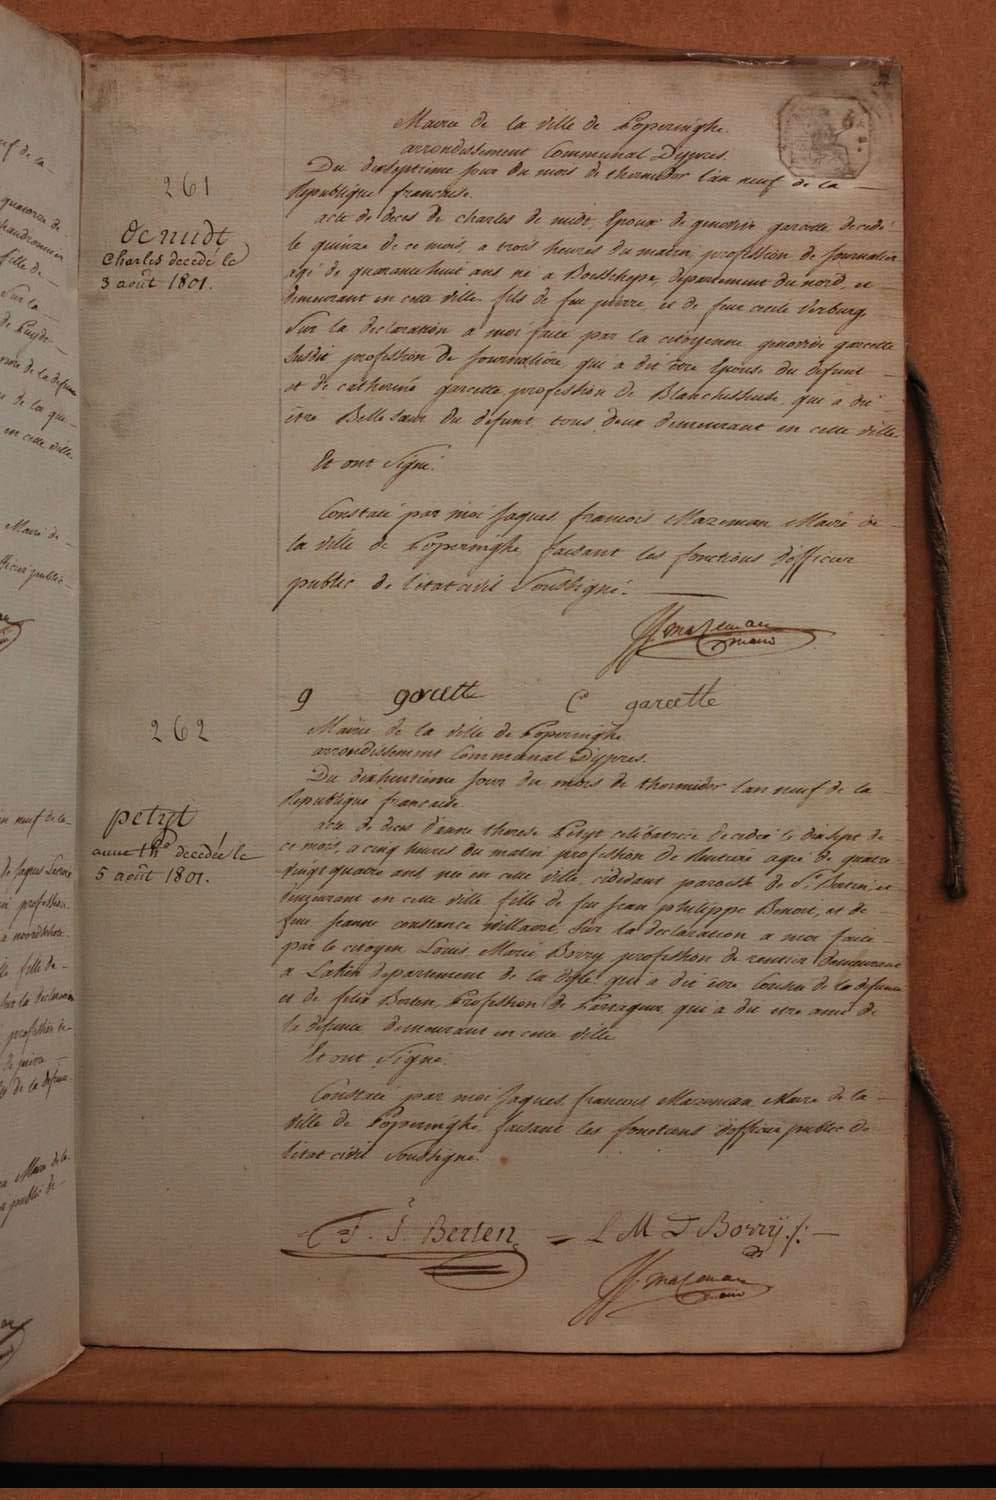 Mairie de la ville de Poperinghe
arrondissement Communal D'ypres.
261
Du dixseptieme jour du mois de thermidor l'an neuf de la
Republique francaise.
denudt
Charles decedé le
3 août 1801.
acte de deces de charles de nudt, Epoux de genovive garcette decedé
le quinze de ce mois, a trois heures du matin, profession de Journalier
agé de quarantehuit ans né a Boesschepe, departement du nord, et
demeurant en cette ville, fils de feu pierre, et de feue cecile Verburg
Sur la declaration a moi faite par la citoyenne genovive garcette
susdit, profession de journaliere, qui a dit etre Epouse du defunt
et de catherine garcette, profession de Blanchisseuse, qui a dit
etre Belle soeur du defunt, tous deux demeurant en cette ville
Et ont signé.
Constaté par moi Jaques francois Mazeman Maire de
la ville de Poperinghe faisant les fonctions d'officier
public de l'etat civil soussigné.
JJ mazeman
maire
g garcette C garcette
262
Mairie de la ville de Poperinghe
arrondissement Communal D'ypres.
Du dixhuitieme jour du mois de thermidor l'an neuf de la
Republique francaise.
petyt
anne thse decedée le
5 août 1801.
acte de deces d'anne therese Petyt celibatrice decedée le dixsept de
ce mois, a cinq heures du matin, profession de Rentiere agée de quatre
vingt quatre ans née en cette ville, cidevant paroisse de St. Bertin, et
demeurant en cette ville fille de feu jean philippe Benoit, et de
feue jeanne constance willaere, Sur la declaration a moi faite
par le citoyen Louis Marie Borry, profession de rentier demeurant
a departement de la dyle qui a dit etre Cousin de la defunte
et de felix Berten, Profession de qui a dit etre ami de
la defunte demeurant en cette ville
Et ont signé.
Constaté par moi Jaques francois Mazeman Maire de la
ville de Poperinghe faisant les fonctions d'officier public de
l'etat civil soussigné.
F. J. Berten L M J Borrÿ
JJ mazeman
maire